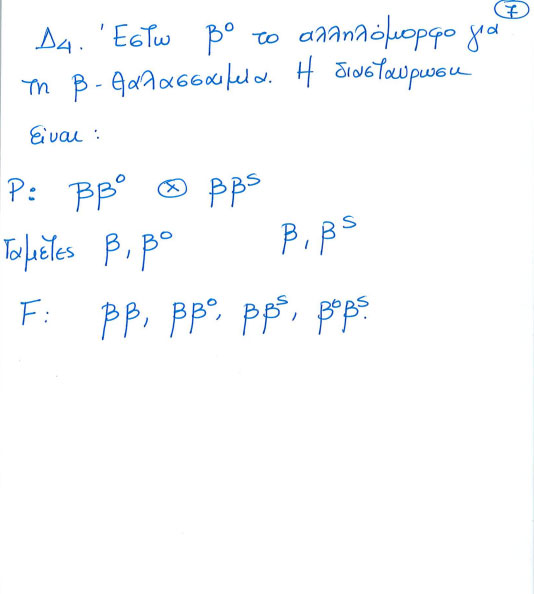 7
Δ4. Έστω β⁰ το αλληλόμορφο για
τη β-θαλασσαιμία. Η διασταύρωση
είναι:
P: ββ⁰ ⊗ ββˢ
Γαμέτες β, β⁰ β, βˢ
F: ββ, ββ⁰, ββˢ, β⁰βˢ.